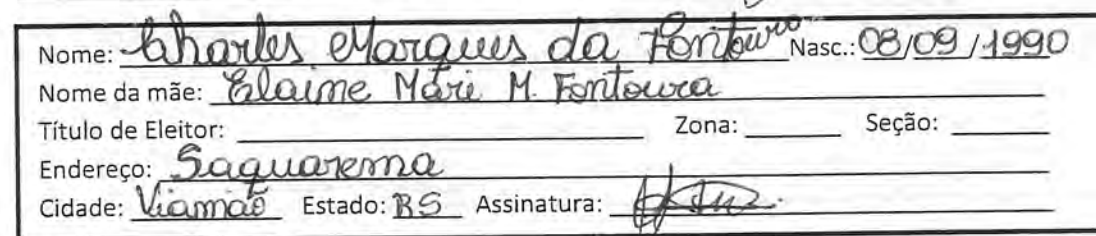 Nome: Charles Marques da Fontoura Nasc.: 08/09/1990
Nome da mãe: Elaine Mari M. Fontoura
Título de Eleitor: Zona: Seção:
Endereço: Saquarema
Cidade: Viamão Estado: RS Assinatura: